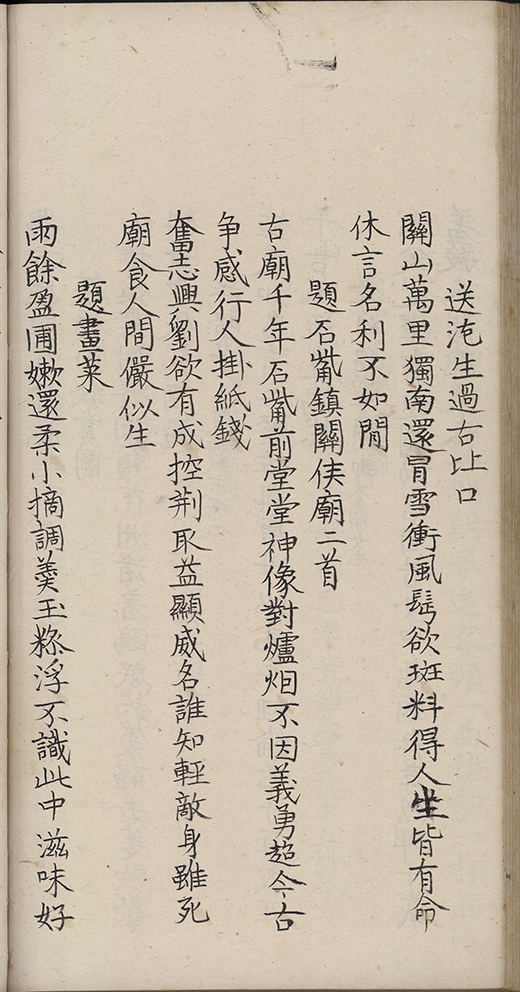 送沌生過古北口
關山萬里獨南還冒雪衝風鬂欲斑料得人生皆有命
休言名利不如閒
題石觜鎮關侯廟二首
古廟千年石觜前堂堂神像對爐烟不因義勇超今古
争感行人掛紙錢
奮志興劉欲有成控荆取益顯威名誰知輕敵身雖死
廟食人間儼似生
題畫菜
雨餘盈圃嫩還柔小摘調羹玉糝浮不識此中滋味好